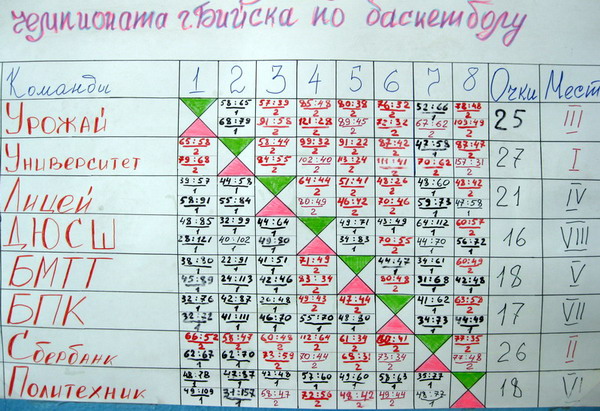 чемпионата г.Бийска по баскетболу
Команды 1 2 3 4 5 6 7 8 Очки Мест
58:65 57:39 85:48 80:38 76:32 52:66 78:48
1 2 2 2 2 1 2
Урожай 25 III
68:79 91:58 121:28 89:45 72:32 67:62 103:49
1 2 2 2 2 2 2
65:58 58:44 99:32 91:22 87:42 47:53 87:47
2 2 2 2 2 1 2
Университет 27 I
79:68 84:55 102:40 113:24 111:41 70:62 157:31
2 2 2 2 2 2 2
39:57 44:58 64:44 51:41 48:26 48:60 48:42
1 1 2 2 2 1 2
Лицей 21 IV
58:91 55:84 80:49 46:42 70:46 59:73 47:58
1 1 2 2 2 1 1
48:85 32:99 44:64 49:71 43:49 64:112 60:57
1 1 1 1 1 1 2
ДЮСШ 16 VIII
28:121 40:102 49:80 34:83 70:55 44:70 56:72
1 1 1 1 2 1 1
38:80 22:91 41:51 71:49 44:47 34:61 60:49
1 1 1 2 1 1 2
БМТТ 18 V
45:89 24:113 42:46 83:34 80:43 31:68 42:48
1 1 1 2 2 1 1
32:76 42:87 26:48 49:43 47:44 41:62 63:58
1 1 1 2 2 1 2
БПК 17 VII
32:72 41:111 46:70 55:70 43:80 34:73 44:49
1 1 1 1 1 1 1
66:52 53:47 60:48 112:64 61:34 62:41 77:35
2 2 2 2 2 2 2
Сбербанк 26 II
62:67 62:70 73:59 70:44 68:31 73:34 77:48
1 1 2 2 2 2 2
48:78 47:87 42:48 57:60 49:60 58:63 35:77
1 1 1 1 1 1 1
Политехник 18 VI
49:103 31:157 58:47 72:56 48:42 49:44 48:77
1 1 2 2 2 2 1